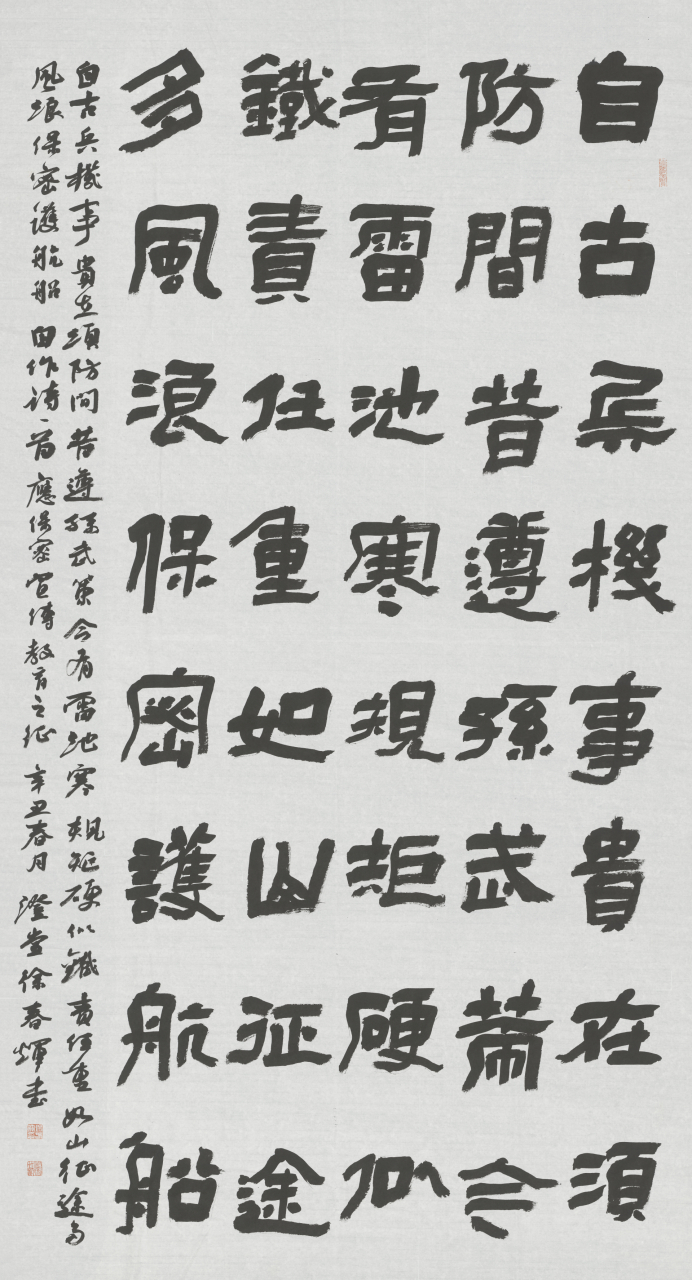 自古兵機事貴在須
防間昔遵孫武策今
有雷池寒規矩硬似
鐵責任重如山征途
多風浪保密護航船
自古兵機事貴在須防間昔遵孫武策今有雷池寒規矩硬似鐵責任重如山征途多
風浪保密護航船 田作詩一首應保密宣傳教育之征 辛丑春月 澄堂徐春輝書